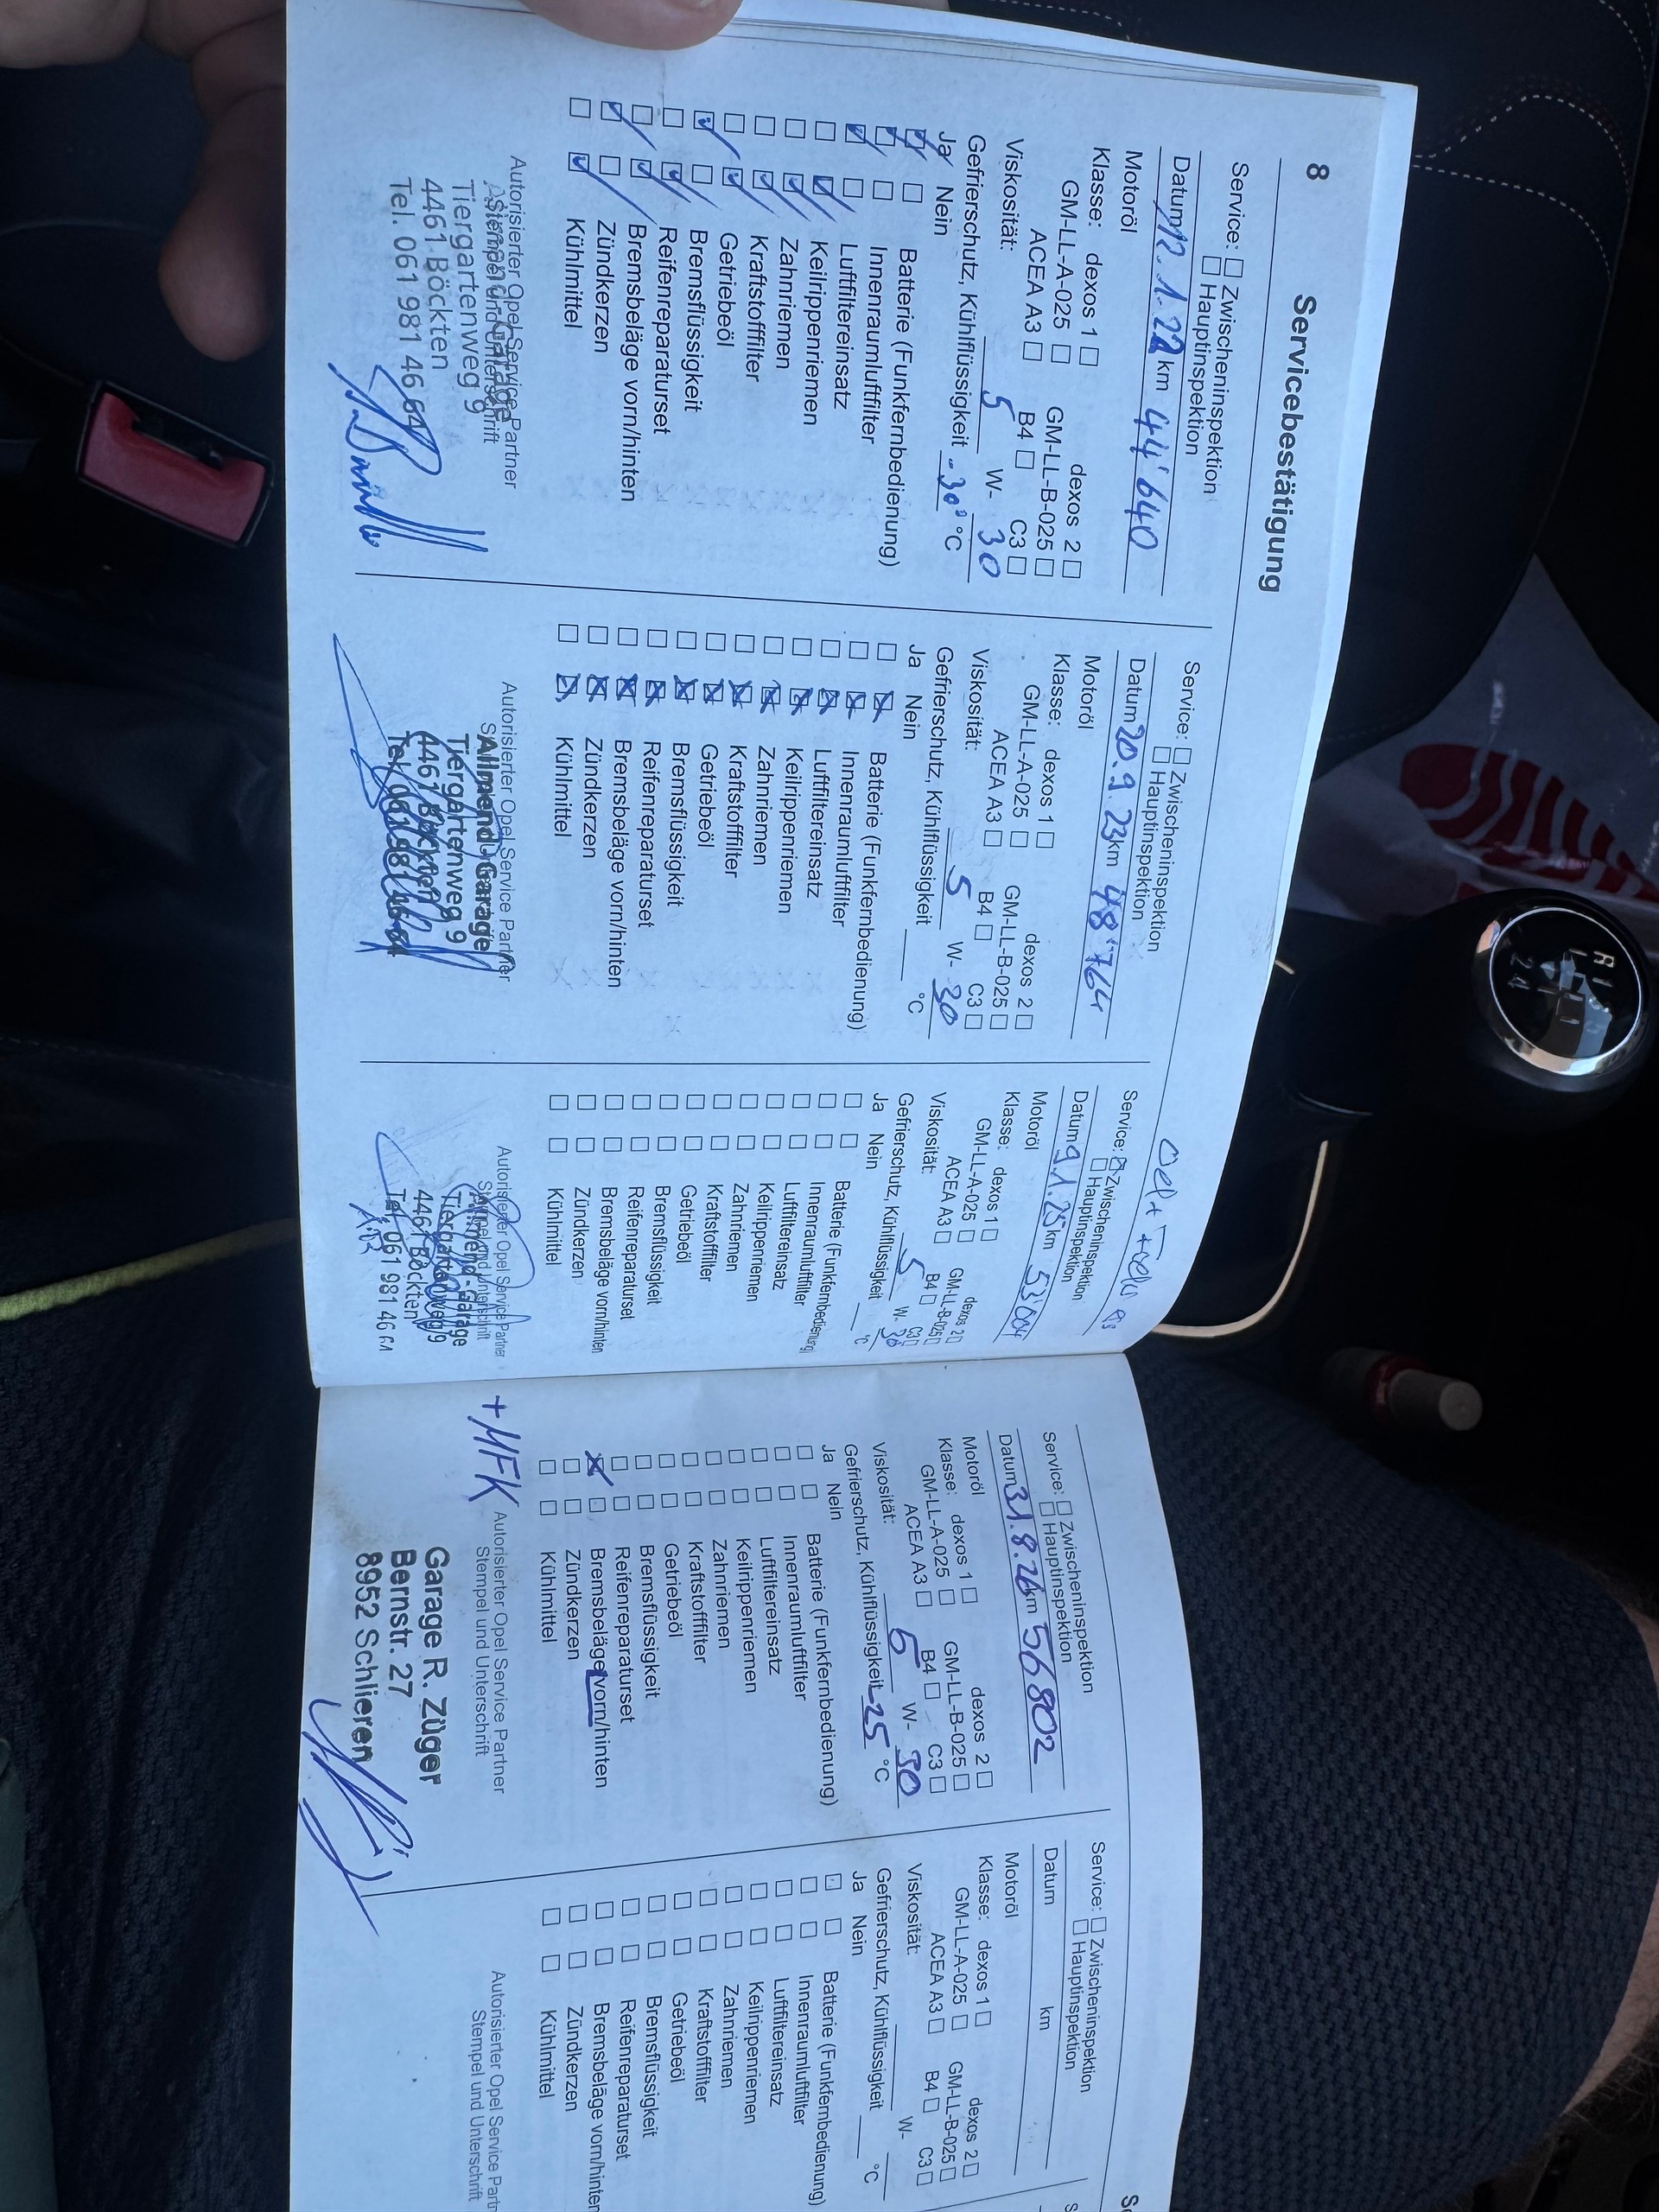 8 Servicebestätigung
Service: Zwischeninspektion
Hauptinspektion
Datum 12.1.22 km 44'640
Motoröl
Klasse: dexos 1 dexos 2
GM-LL-A-025 GM-LL-B-025
ACEA A3 B4 C3
Viskosität: 5 W- 30
Gefrierschutz, Kühlflüssigkeit -30° °C
Ja Nein
Batterie (Funkfernbedienung)
Innenraumluftfilter
Luftfiltereinsatz
Keilrippenriemen
Zahnriemen
Kraftstofffilter
Getriebeöl
Bremsflüssigkeit
Reifenreparaturset
Bremsbeläge vorn/hinten
Zündkerzen
Kühlmittel
Autorisierter Opel Service Partner
Stempel und Unterschrift
Tiergartenweg 9
4461 Böckten
Tel. 061 981 46 64
Service: Zwischeninspektion
Hauptinspektion
Datum 20.9.23 km 48'764
Motoröl
Klasse: dexos 1 dexos 2
GM-LL-A-025 GM-LL-B-025
ACEA A3 B4 C3
Viskosität: 5 W- 30
Gefrierschutz, Kühlflüssigkeit °C
Ja Nein
Batterie (Funkfernbedienung)
Innenraumluftfilter
Luftfiltereinsatz
Keilrippenriemen
Zahnriemen
Kraftstofffilter
Getriebeöl
Bremsflüssigkeit
Reifenreparaturset
Bremsbeläge vorn/hinten
Zündkerzen
Kühlmittel
Autorisierter Opel Service Partner
Allmend-Garage
Tiergartenweg 9
4461 Böckten
Tel. 061 981 46 64
Oel +
Service: Zwischeninspektion
Hauptinspektion
Datum 9.1.25 km 53'004
Motoröl
Klasse: dexos 1 dexos 2
GM-LL-A-025 GM-LL-B-025
ACEA A3 B4 C3
Viskosität: 5 W- 30
Gefrierschutz, Kühlflüssigkeit °C
Ja Nein
Batterie (Funkfernbedienung)
Innenraumluftfilter
Luftfiltereinsatz
Keilrippenriemen
Zahnriemen
Kraftstofffilter
Getriebeöl
Bremsflüssigkeit
Reifenreparaturset
Bremsbeläge vorn/hinten
Zündkerzen
Kühlmittel
Autorisierter Opel Service Partner
Stempel und Unterschrift
Allmend-Garage
Tiergartenweg 9
4461 Böckten
Tel. 061 981 46
Service: Zwischeninspektion
Hauptinspektion
Datum 31.8.26 km 56802
Motoröl
Klasse: dexos 1 dexos 2
GM-LL-A-025 GM-LL-B-025
ACEA A3 B4 C3
Viskosität: 5 W- 30
Gefrierschutz, Kühlflüssigkeit -25 °C
Ja Nein
Batterie (Funkfernbedienung)
Innenraumluftfilter
Luftfiltereinsatz
Keilrippenriemen
Zahnriemen
Kraftstofffilter
Getriebeöl
Bremsflüssigkeit
Reifenreparaturset
Bremsbeläge vorn/hinten
Zündkerzen
Kühlmittel
+ MFK
Autorisierter Opel Service Partner
Stempel und Unterschrift
Garage R. Züger
Bernstr. 27
8952 Schlieren
Service: Zwischeninspektion
Hauptinspektion
Datum km
Motoröl
Klasse: dexos 1 dexos 2
GM-LL-A-025 GM-LL-B-025
ACEA A3 B4 C3
Viskosität: W-
Gefrierschutz, Kühlflüssigkeit °C
Ja Nein
Batterie (Funkfernbedienung)
Innenraumluftfilter
Luftfiltereinsatz
Keilrippenriemen
Zahnriemen
Kraftstofffilter
Getriebeöl
Bremsflüssigkeit
Reifenreparaturset
Bremsbeläge vorn/hinten
Zündkerzen
Kühlmittel
Autorisierter Opel Service Partn
Stempel und Unterschrift